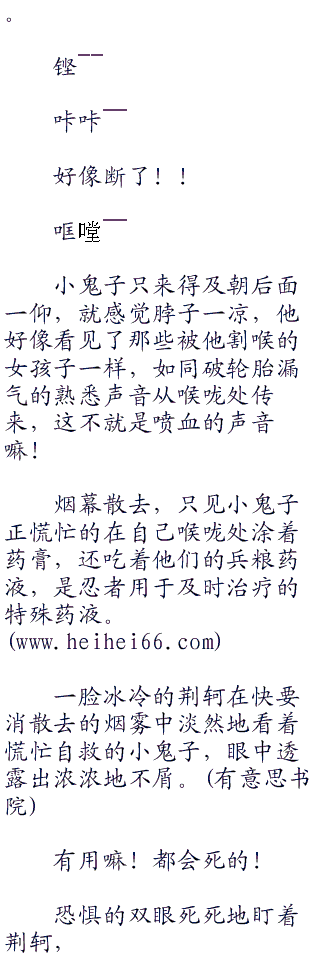 。
铿――
咔咔――
好像断了！！
哐嘡――
小鬼子只来得及朝后面
一仰，就感觉脖子一凉，他
好像看见了那些被他割喉的
女孩子一样，如同破轮胎漏
气的熟悉声音从喉咙处传
来，这不就是喷血的声音
嘛！
烟幕散去，只见小鬼子
正慌忙的在自己喉咙处涂着
药膏，还吃着他们的兵粮药
液，是忍者用于及时治疗的
特殊药液。
(www.heihei66.com)
一脸冰冷的荆轲在快要
消散去的烟雾中淡然地看着
慌忙自救的小鬼子，眼中透
露出浓浓地不屑。(有意思书
院)
有用嘛！都会死的！
恐惧的双眼死死地盯着
荆轲，